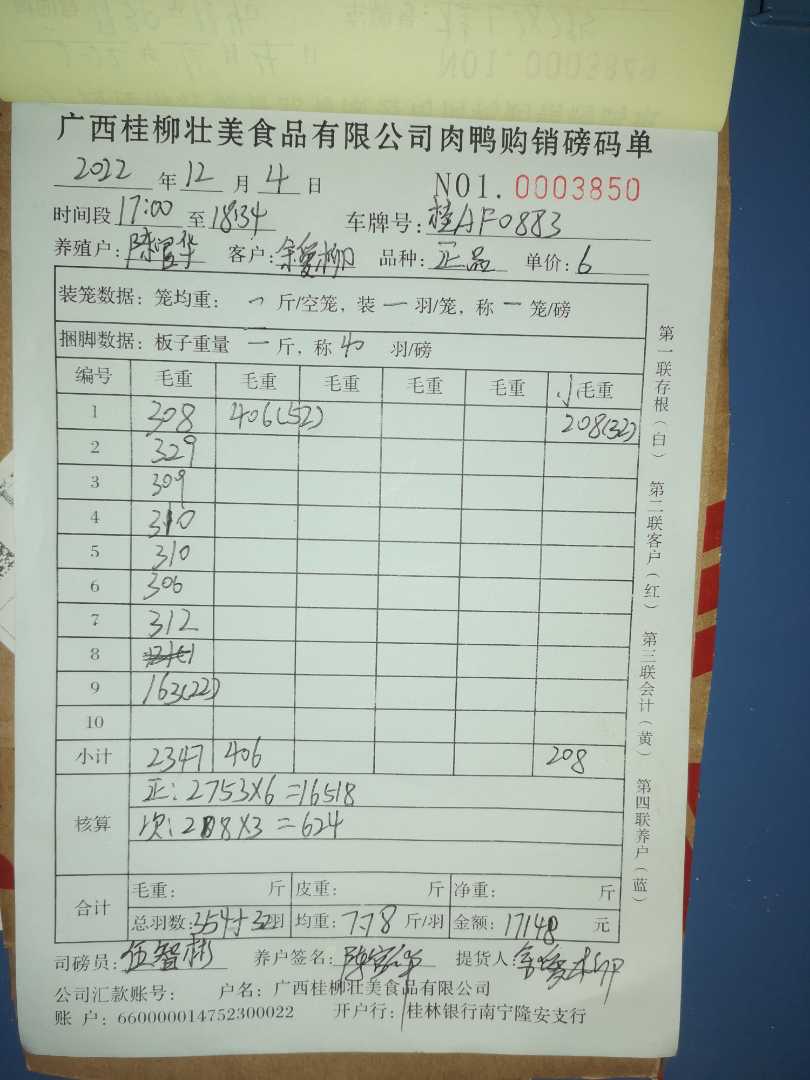 广西桂柳壮美食品有限公司肉鸭购销磅码单
2022 年 12 月 4 日 NO1.0003850
时间段 17:00 至 18:34 车牌号: 桂AF0883
养殖户: 陈 华 客户: 余爱柳 品种: 正品 单价: 6
装笼数据: 笼均重: 一 斤/空笼, 装 一 羽/笼, 称 一 笼/磅
捆脚数据: 板子重量 一 斤, 称 40 羽/磅
编号 毛重 毛重 毛重 毛重 毛重 小 毛重
1 308 406(52) 208(32)
2 329
3 309
4 310
5 310
6 306
7 312
8
9 163(22)
10
小计 2347 406 208
核算 正: 2753X6=16518
次: 208X3=624
合计 毛重: 斤 皮重: 斤 净重: 斤
总羽数: 354+32羽 均重: 7.78 斤/羽 金额: 17148 元
司磅员: 伍智彬 养户签名: 陈 华 提货人: 余爱柳
公司汇款账号: 户名: 广西桂柳壮美食品有限公司
账 户: 660000014752300022 开户行: 桂林银行南宁隆安支行
第一联存根(白) 第二联客户(红) 第三联会计(黄) 第四联养户(蓝)